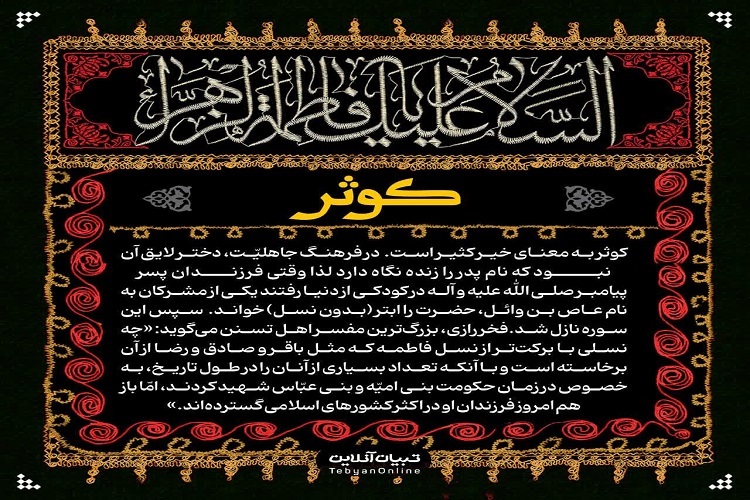 السلام علیک یا فاطمة الزهرا
کوثر
کوثر به معنای خیر کثیر است. در فرهنگ جاهلیّت، دختر لایق آن
نبود که نام پدر را زنده نگاه دارد لذا وقتی فرزندان پسر
پیامبر صلی الله علیه و آله در کودکی از دنیا رفتند یکی از مشرکان به
نام عاص بن وائل، حضرت را ابتر (بدون نسل) خواند. سپس این
سوره نازل شد. فخر رازی، بزرگ‌ترین مفسر اهل تسنن می‌گوید: «چه
نسلی با برکت‌تر از نسل فاطمه که مثل باقر و صادق و رضا از آن
برخاسته است و با آنکه تعداد بسیاری از آنان را در طول تاریخ، به
خصوص در زمان حکومت بنی امیّه و بنی عبّاس شهید کردند، امّا باز
هم امروز فرزندان او در اکثر کشورهای اسلامی گسترده‌اند.»
تبیان آنلاین
TebyanOnline